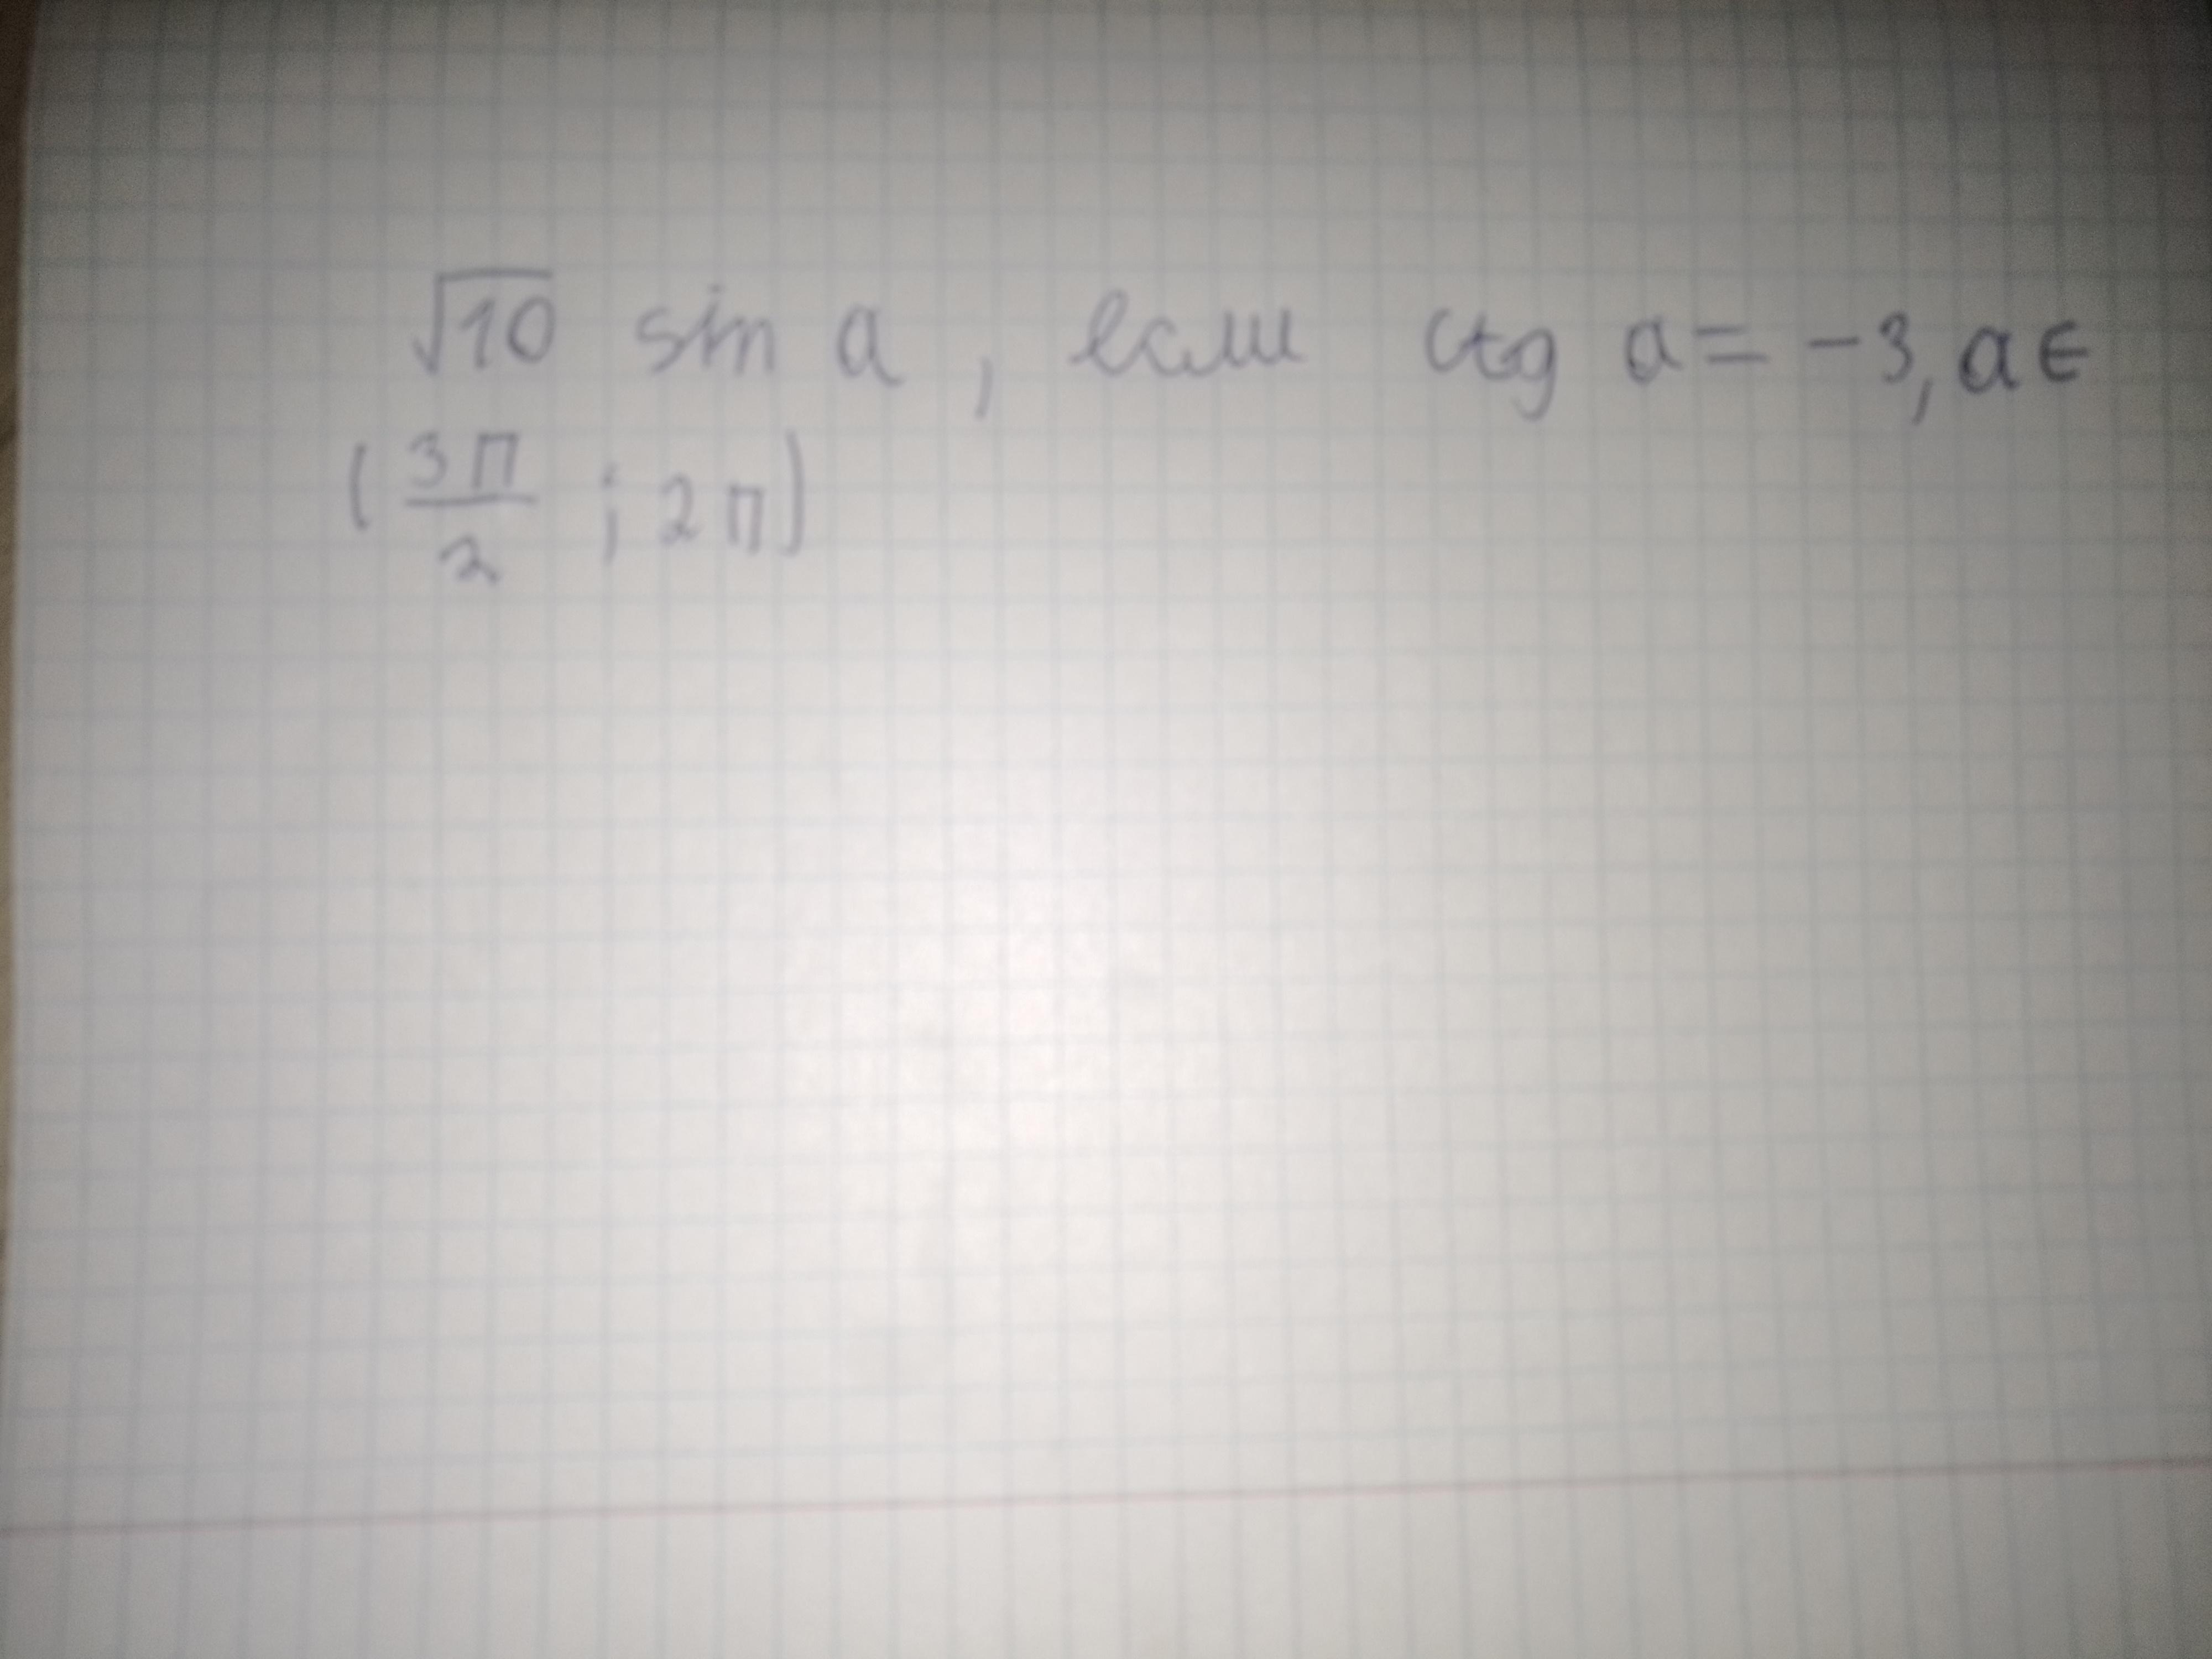 √10 sin a, если ctg a = -3, a ∈
(3π/2 ; 2π)